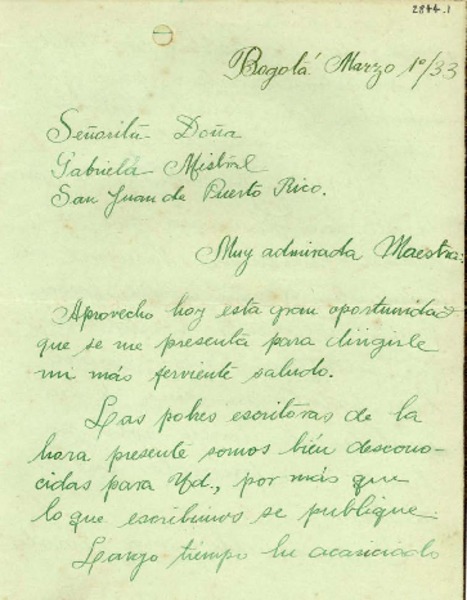 2844.1
Bogotá Marzo 1º/33
Señorita Doña
Gabriela Mistral
San Juan de Puerto Rico.
Muy admirada Maestra:
Aprovecho hoy esta gran oportunidad
que se me presenta para dirigirle
mi más ferviente saludo.
Las pobres escritoras de la
hora presente somos bién descono-
cidas para Ud., por más que
lo que escribimos se publique.
Largo tiempo he acariciado